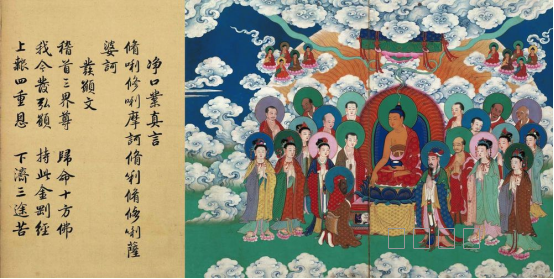 净口業真言
脩唎修唎摩訶脩唎脩修唎薩
婆訶
發願文
稽首三界尊　歸命十方佛
我今發弘願　持此金剛經
上報四重恩　下濟三途苦